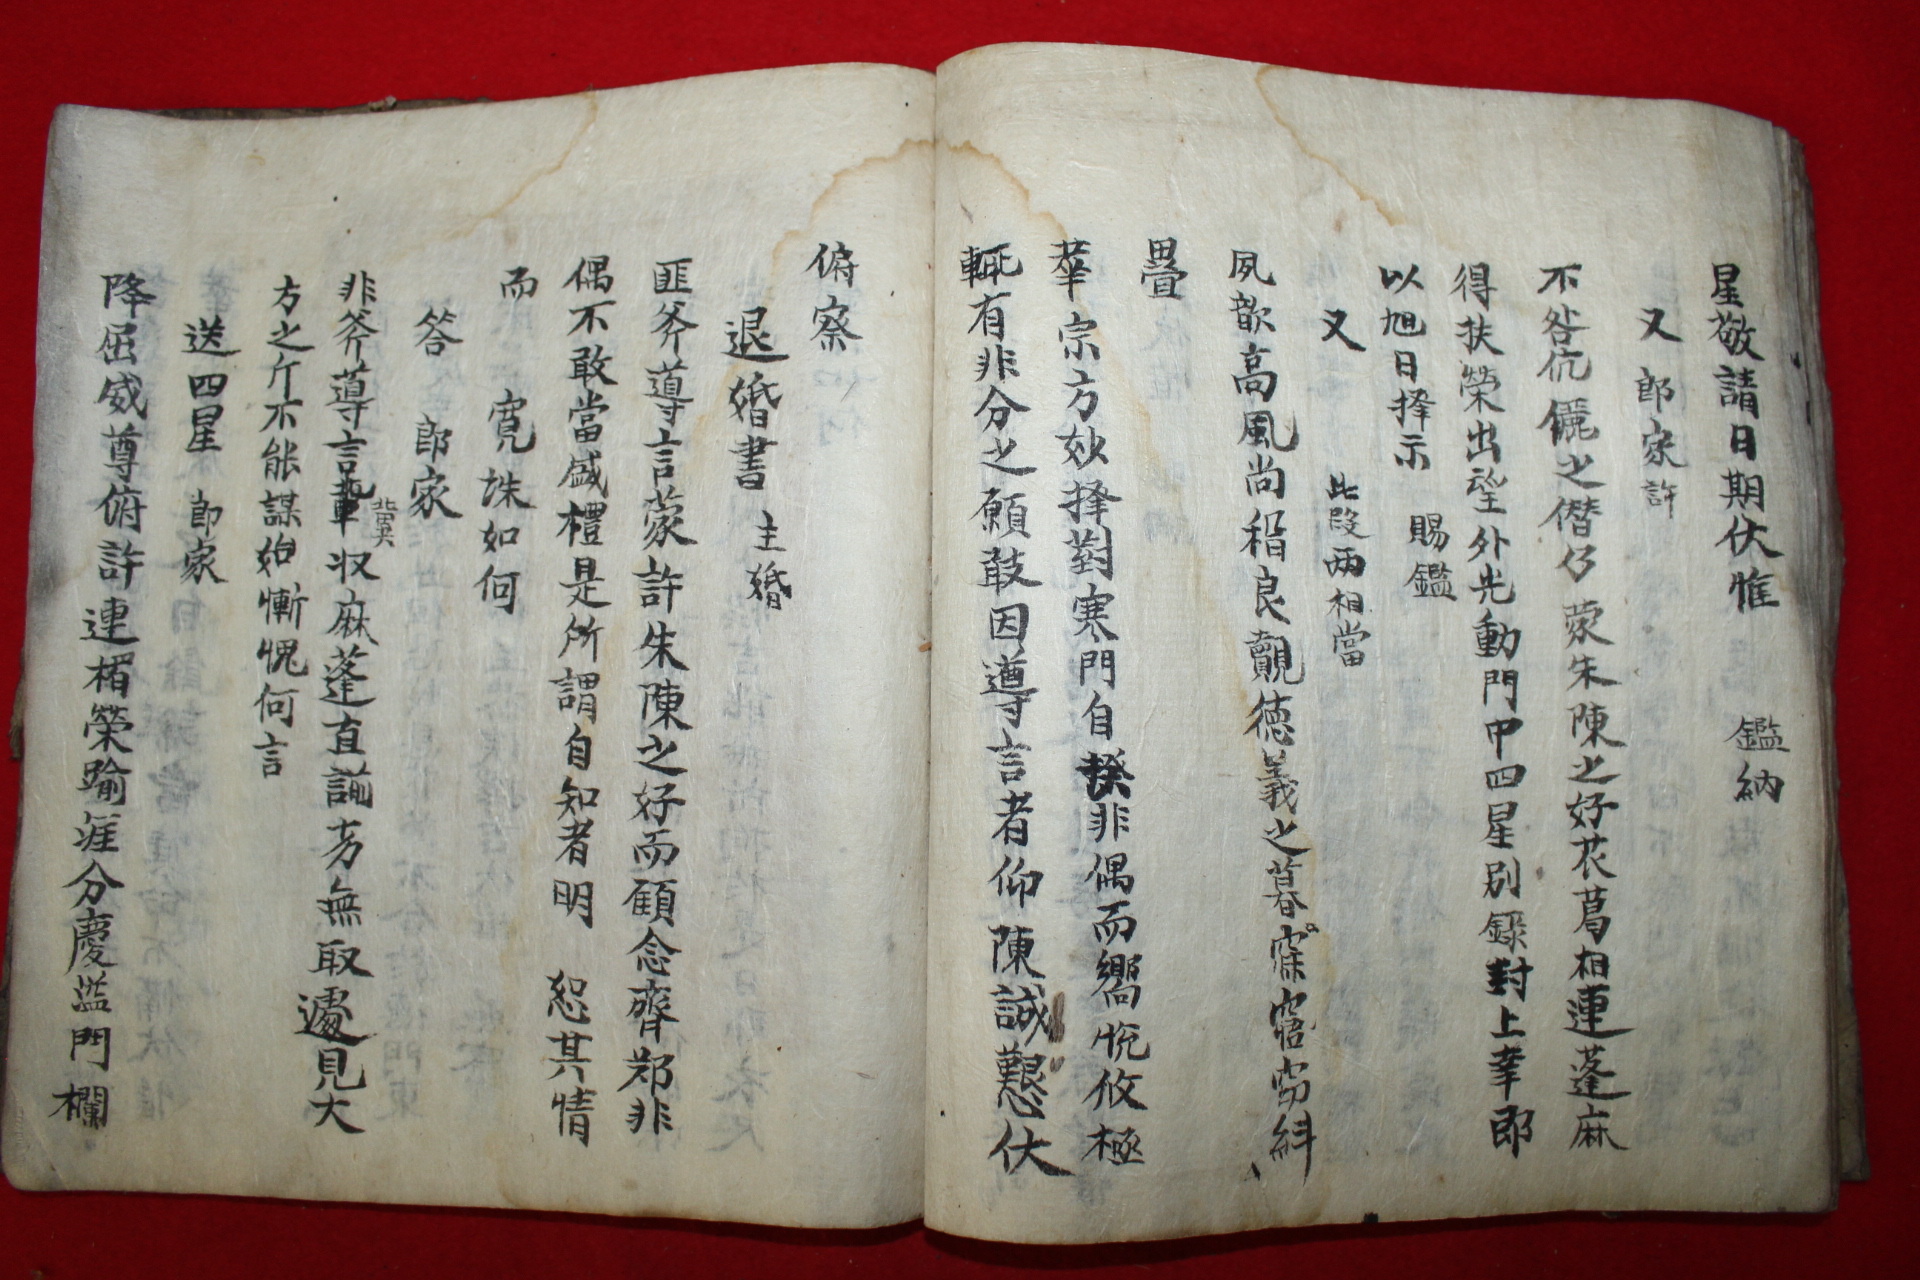 星敬請日期伏惟 鑑納
又 郎家許
不咎伉儷之僭仍蒙朱陳之好花葛相連蓬麻
得扶榮出望外光動門中四星別錄對上幸卽
以旭日擇示 賜鑑
又 此段兩相當
夙歆高風尚稽良覿德義之暮寤寐窃糾
疊
華宗方妙擇對寒門自揆非偶而嚮悅攸極
輒有非分之願敢因遵言者仰陳誠懇伏
俯察
退婚書 主婚
匪斧導言蒙許朱陳之好而顧念齊郑非
偶不敢當盛禮是所謂自知者明 恕其情
而 寬誅如何
答 郎家
非斧導言 冀收麻蓬直諭芳無取遽見大
方之斤不能謀始慚愧何言
送四星 郎家
降屈威尊俯許連楣榮踰涯分慶溢門欄